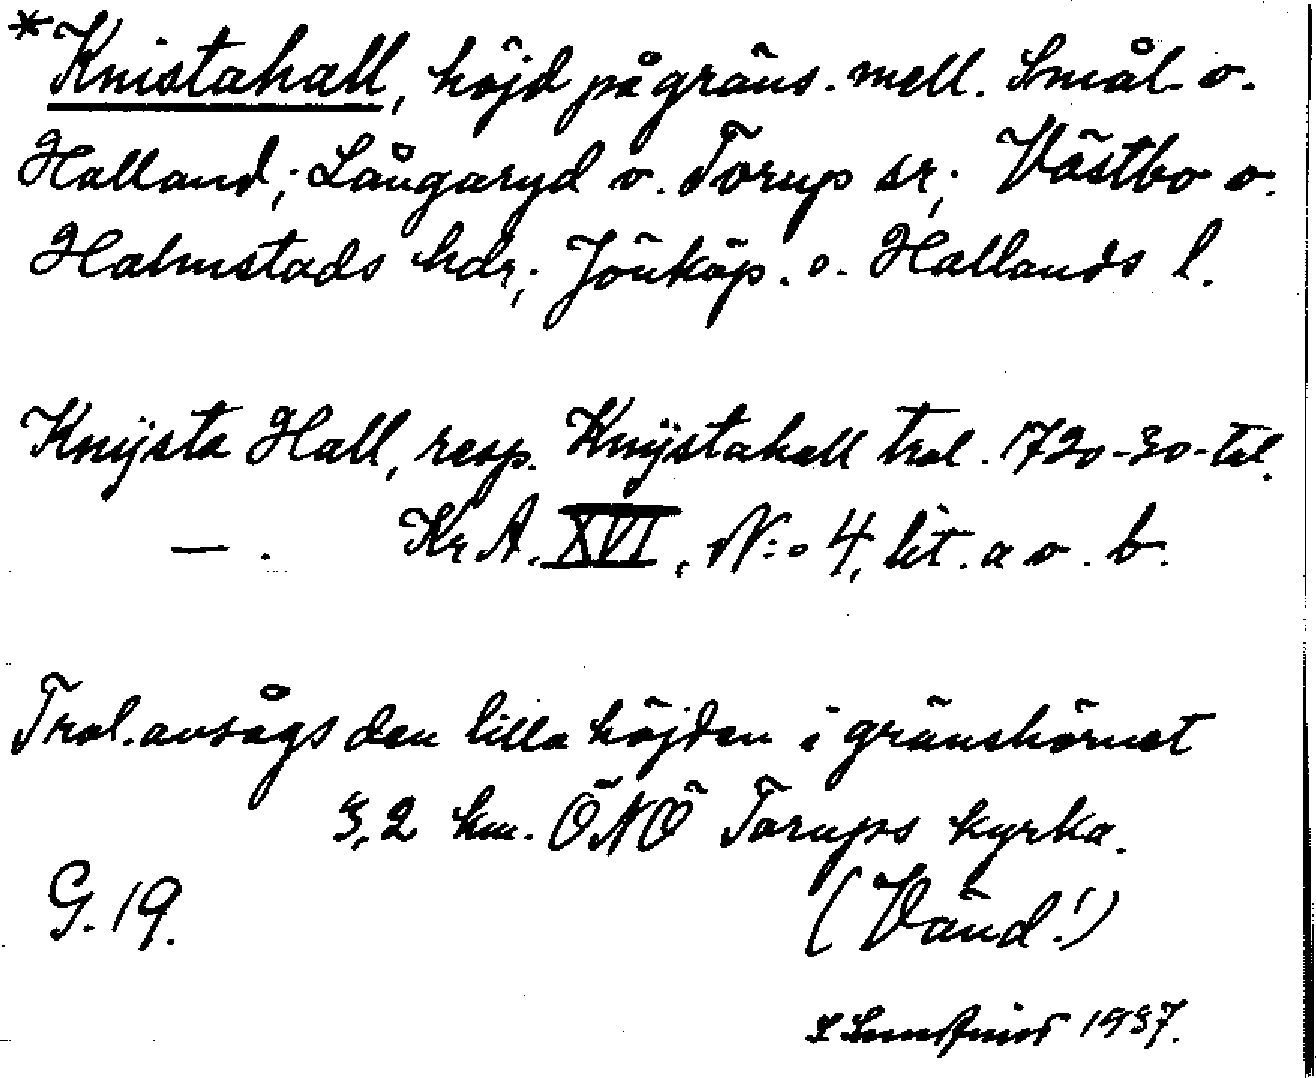 *Knistahall, höjd på gräns. mell. Smål. o.
Halland; Långaryd o. Torup sr; Västbo o.
Halmstads hdr; Jönköp. o. Hallands l.
Knÿsta Hall, resp. Knÿstahall trol. 1720-30-tal.
— . Kr A. XVI, N:o 4, lit. a o. b.
Trol. avsågs den lilla höjden i gränshörnet
3,2 km. ÖNÖ Torups kyrka.
G. 19. (Vänd!)
1937.